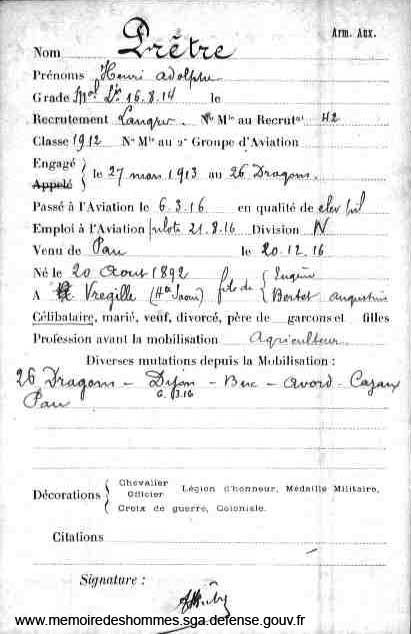 Arm. Aux.
Nom Prêtre
Prénoms Henri Adolphe
Grade Mal Ls 16.8.14 le
Recrutement Langres. No Mle au Recrutal 42
Classe 1912 No Mle au 2e Groupe d'Aviation
Engagé
Appelé } le 27 mars 1913 au 26 Dragons.
Passé à l'Aviation le 6.3.16 en qualité de elev pil
Emploi à l'Aviation pilote 21.8.16 Division N
Venu de Pau le 20.12.16
Né le 20 Aout 1892 fils de { Eugène
A Vregille (Hte Saone) Bertet Augustine
Célibataire, marié, veuf, divorcé, père de garçons et filles
Profession avant la mobilisation Agriculteur
Diverses mutations depuis la Mobilisation :
26 Dragons - Dijon - Buc - Avord - Cazaux
6.3.16
Pau
Décorations { Chevalier
Officier Légion d'honneur, Médaille Militaire,
Croix de guerre, Coloniale.
Citations
Signature :
www.memoiredeshommes.sga.defense.gouv.fr